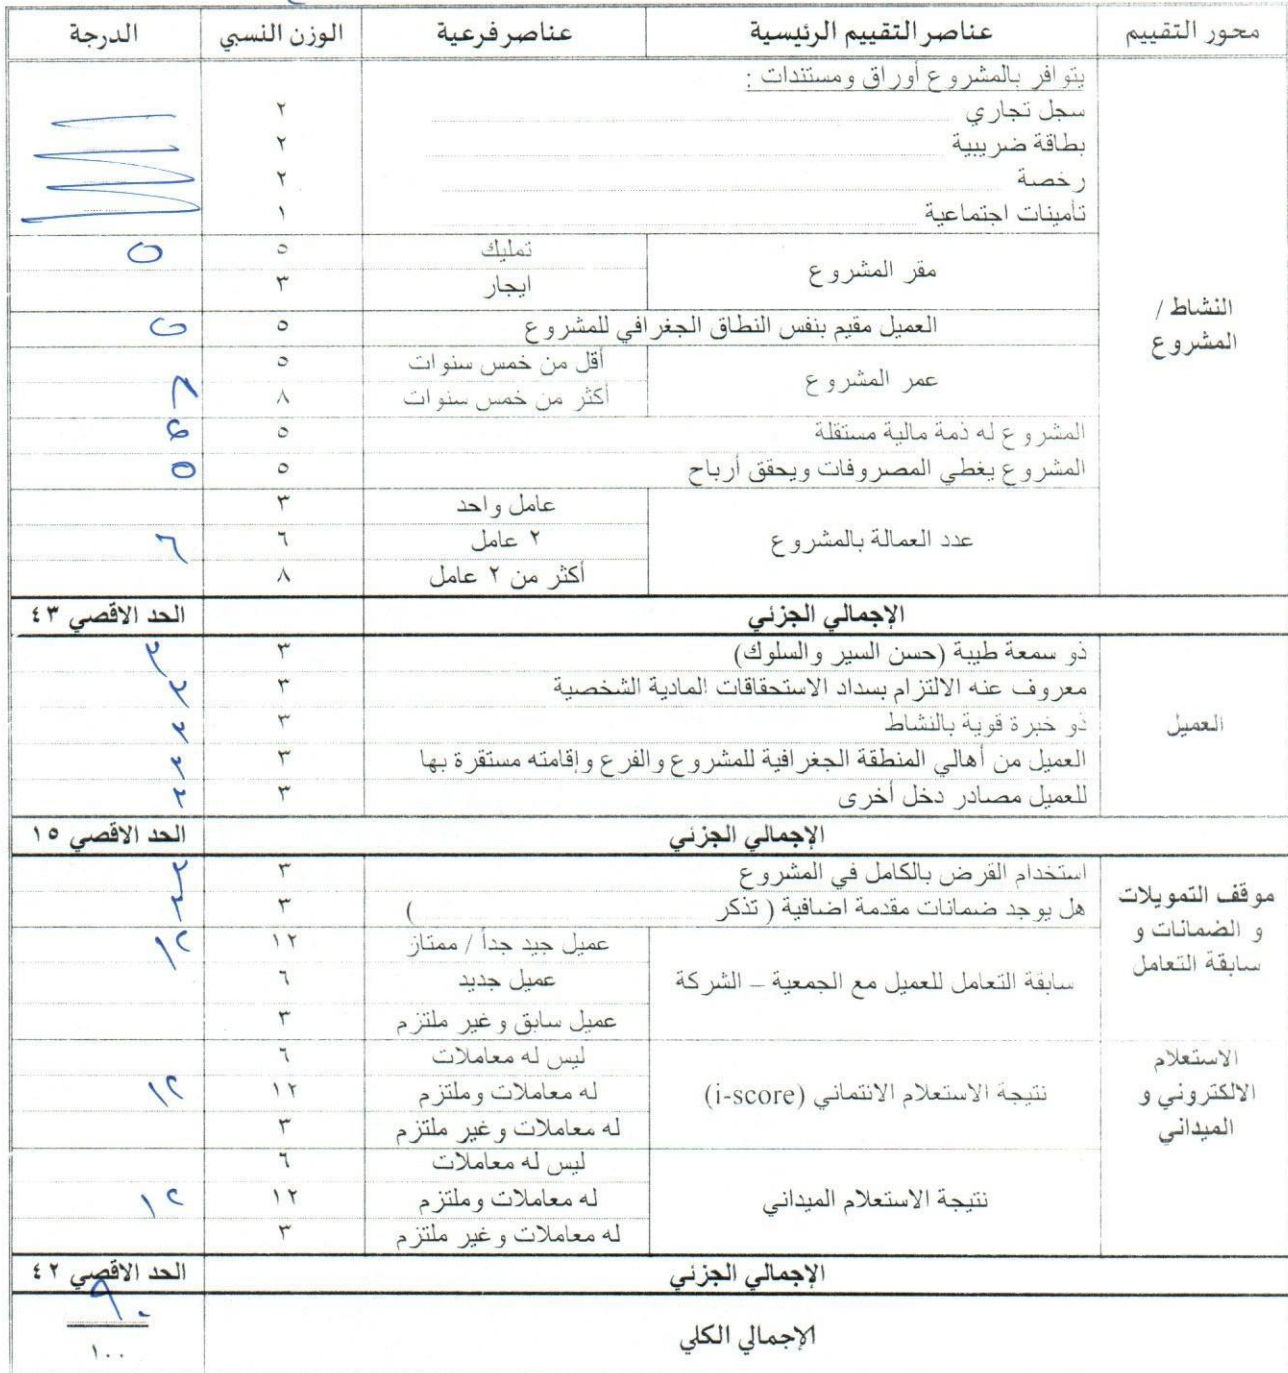 محور التقييم | عناصر التقييم الرئيسية | عناصر فرعية | الوزن النسبي | الدرجة
النشاط / المشروع
يتوافر بالمشروع أوراق ومستندات :
سجل تجاري | ٢
بطاقة ضريبية | ٢
رخصة | ٢
تأمينات اجتماعية | ١
مقر المشروع | تمليك | ٥ | ٥
ايجار | ٣
العميل مقيم بنفس النطاق الجغرافي للمشروع | ٥ | ٥
عمر المشروع | أقل من خمس سنوات | ٥
أكثر من خمس سنوات | ٨
المشروع له ذمة مالية مستقلة | ٥ | ٥
المشروع يغطي المصروفات ويحقق أرباح | ٥ | ٥
عدد العمالة بالمشروع | عامل واحد | ٣
٢ عامل | ٦ | ٦
أكثر من ٢ عامل | ٨
الإجمالي الجزئي | الحد الاقصي ٤٣
العميل
ذو سمعة طيبة (حسن السير والسلوك) | ٣ | ٣
معروف عنه الالتزام بسداد الاستحقاقات المادية الشخصية | ٣ | ٣
ذو خبرة قوية بالنشاط | ٣ | ٣
العميل من أهالي المنطقة الجغرافية للمشروع والفرع وإقامته مستقرة بها | ٣ | ٣
للعميل مصادر دخل أخرى | ٣ | ٣
الإجمالي الجزئي | الحد الاقصي ١٥
موقف التمويلات و الضمانات و سابقة التعامل
استخدام القرض بالكامل في المشروع | ٣ | ٣
هل يوجد ضمانات مقدمة اضافية ( تذكر ) | ٣ | ٣
سابقة التعامل للعميل مع الجمعية – الشركة | عميل جيد جداً / ممتاز | ١٢ | ١٢
عميل جديد | ٦
عميل سابق وغير ملتزم | ٣
الاستعلام الالكتروني و الميداني
نتيجة الاستعلام الائتماني (i-score) | ليس له معاملات | ٦
له معاملات وملتزم | ١٢ | ١٢
له معاملات وغير ملتزم | ٣
نتيجة الاستعلام الميداني | ليس له معاملات | ٦
له معاملات وملتزم | ١٢ | ١٢
له معاملات وغير ملتزم | ٣
الإجمالي الجزئي | الحد الاقصي ٤٢
الإجمالي الكلي | ٩٠
١٠٠